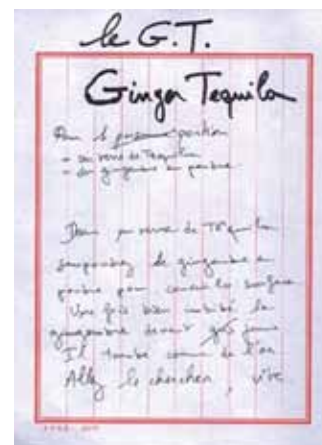 le G.T.
Ginger Tequila
Pour 1 personne portion
- un verre de Tequila
- du gingembre en poudre
Dans un verre de Téquila
saupoudrez de gingembre en
poudre pour couvrir la surface
Une fois bien imbibé le
gingembre devient
Il tombe comme de l'or
Allez le chercher, vite